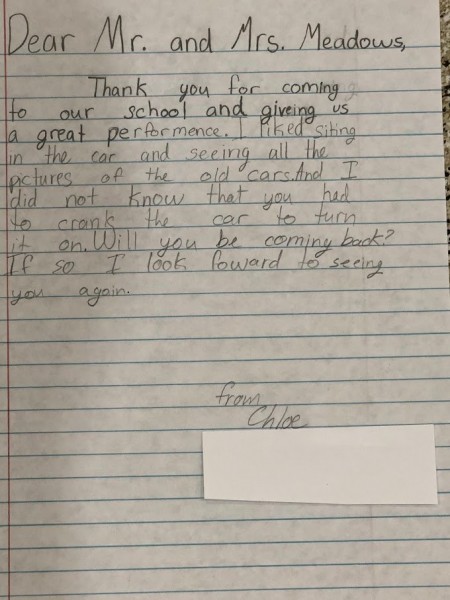 Dear Mr. and Mrs. Meadows,
Thank you for coming
to our school and giveing us
a great performence. I liked siting
in the car and seeing all the
pictures of the old cars. And I
did not know that you had
to crank the car to turn
it on. Will you be coming back?
If so I look foward to seeing
you again.
from,
Chloe